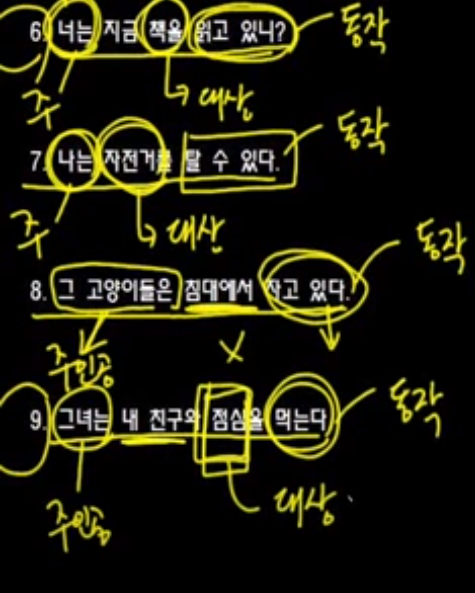 6. 너는 지금 책을 읽고 있니? 동작
주 대상
7. 나는 자전거를 탈 수 있다. 동작
주 대상
8. 그 고양이들은 침대에서 자고 있다. 동작
주인공 X
9. 그녀는 내 친구와 점심을 먹는다 동작
주인공 대상